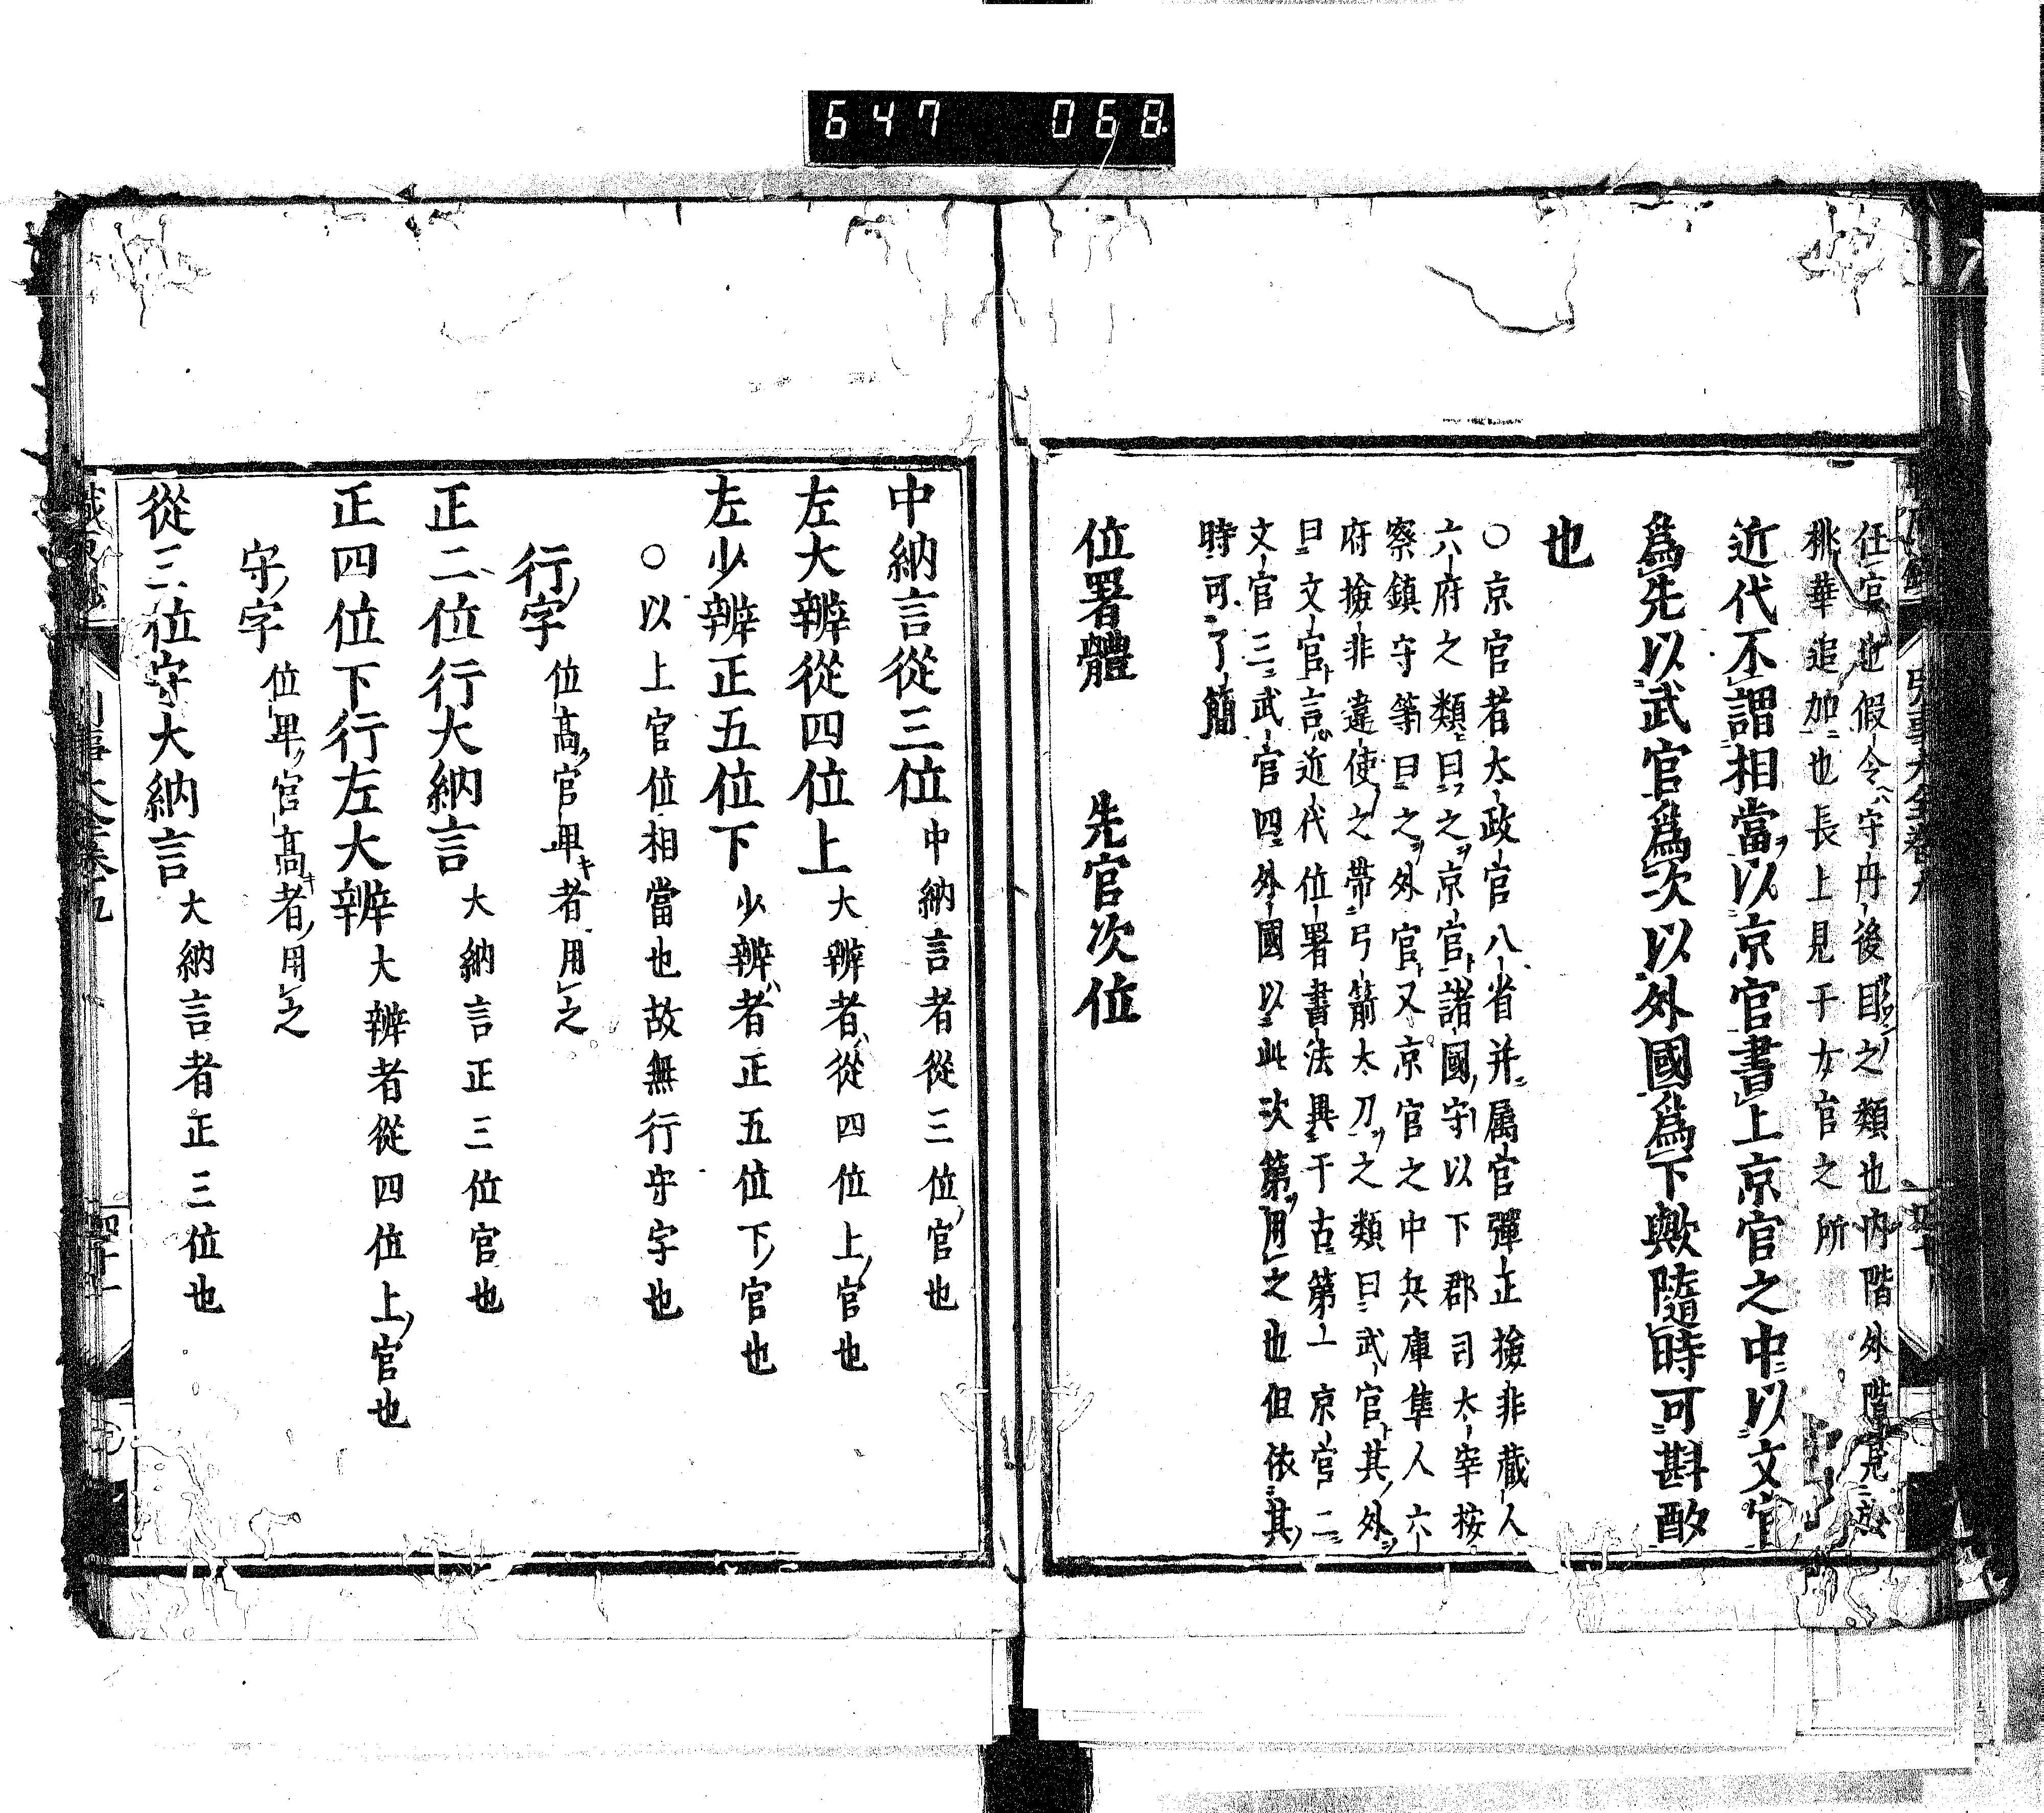 647 068
任官也假令守冉後目之類也内階外階見放
桃華追加也長上見干女官之所
近代不謂相當以京官書上京官之中以文官
爲先以武官爲次以外國爲下歟隨時可斟酌
也
○京官者太政官八省并属官彈正撿非藏人
六府之類曰之京官諸國守以下郡司太宰按
察鎮守等曰之外官又京官之中兵庫隼人六
府撿非違使之帶弓箭太刀之類曰武官其外
曰文官言近代位署書法異于古第一京官二
文官三武官四外國以此次第用之也但依其
時可了簡
位署體 先官次位
中納言從三位 中納言者從三位官也
左大辨從四位上 大辨者從四位上官也
左少辨正五位下 少辨者正五位下官也
○以上官位相當也故無行守字也
行字 位高官卑者用之
正二位行大納言 大納言正三位官也
正四位下行左大辨 大辨者從四位上官也
守字 位卑官高者用之
從三位守大納言 大納言者正三位也
四十一